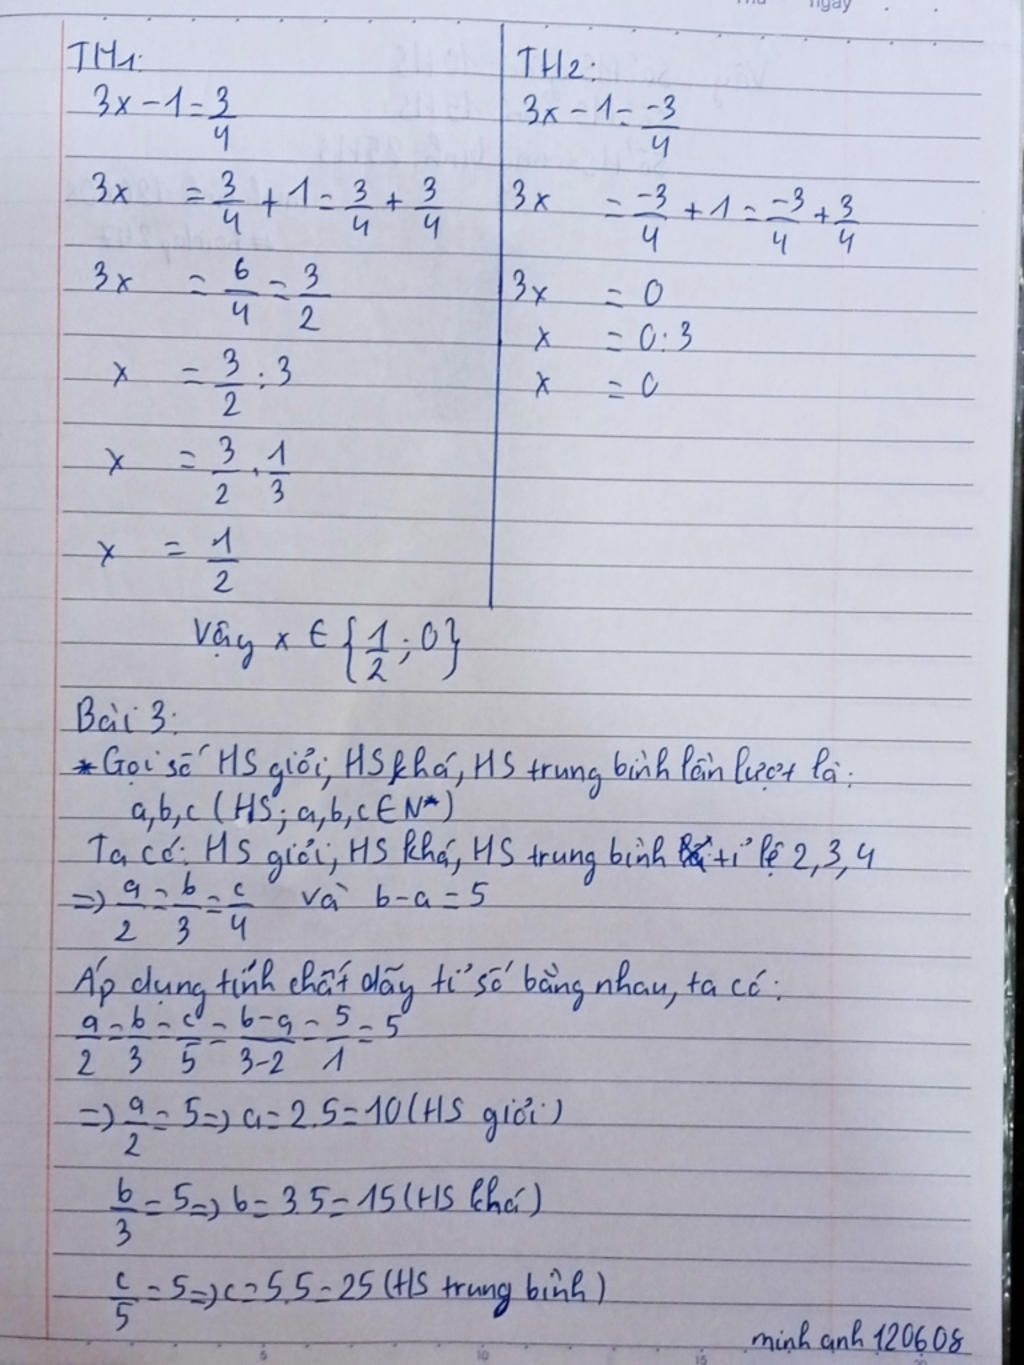 ngày
TH1:
3x - 1 = 3/4
3x = 3/4 + 1 = 3/4 + 3/4
3x = 6/4 = 3/2
x = 3/2 : 3
x = 3/2 . 1/3
x = 1/2
TH2:
3x - 1 = -3/4
3x = -3/4 + 1 = -3/4 + 3/4
3x = 0
x = 0 : 3
x = 0
Vậy x ∈ {1/2; 0}
Bài 3:
* Gọi số HS giỏi, HS khá, HS trung bình lần lượt là:
a, b, c (HS; a, b, c ∈ N*)
Ta có: HS giỏi, HS khá, HS trung bình tỉ lệ 2, 3, 4
=> a/2 = b/3 = c/4 và b - a = 5
Áp dụng tính chất dãy tỉ số bằng nhau, ta có:
a/2 = b/3 = c/5 = b-a/3-2 = 5/1 = 5
=> a/2 = 5 => a = 2.5 = 10 (HS giỏi)
b/3 = 5 => b = 3.5 = 15 (HS khá)
c/5 = 5 => c = 5.5 = 25 (HS trung bình)
minh anh 120608
5 10 15